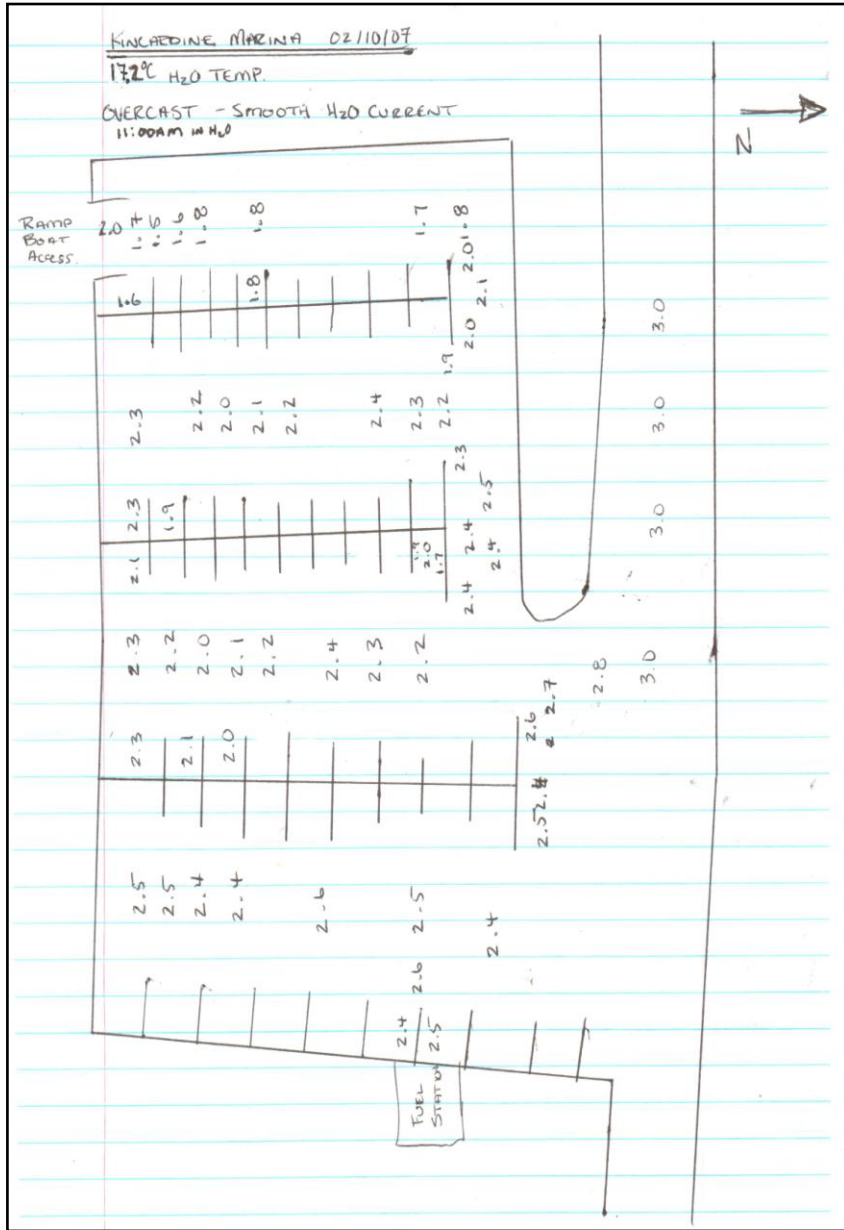 KINCARDINE MARINA 02/10/07
17.2°C H2O TEMP.
OVERCAST - SMOOTH H2O CURRENT
11:00AM IN H2O
N
RAMP
BOAT
ACCESS.
2.0 1.7 1.6 1.6 1.8 1.8 1.7 1.8
2.0
1.6 1.8 2.1
2.0 3.0
1.9
2.3 2.2 2.0 2.1 2.2 2.4 2.3 2.2 3.0
2.3
2.3 1.9 2.5
2.4 3.0
2.1 2.0 1.7 2.4
2.4
2.3 2.2 2.0 2.1 2.2 2.4 2.3 2.2 2.8 3.0
2.7
2.3 2.1 2.0 2.6
2.5
2.5 2.5 2.4 2.4 2.6 2.5 2.4
2.6
2.4 2.5
FUEL
STATION